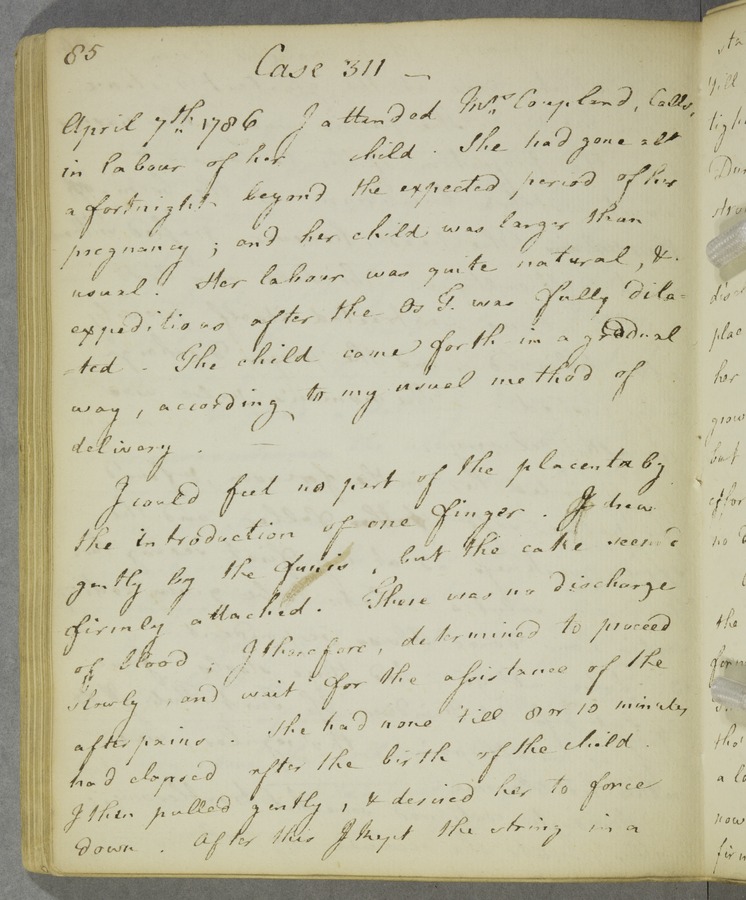 85
Case 311 —
April 7th 1786 I attended Mrs Coupland, Calls,
in labour of her child. She had gone
a fortnight beyond the expected period of her
pregnancy; and her child was larger than
usual. Her labour was quite natural, &
expeditious after the Os T. was fully dila=
-ted. The child came forth in a gradual
way, according to my usual method of
delivery. —
I could feel no part of the placenta by
the introduction of one finger. I drew
gently by the funis, but the cake seem'd
firmly attached. There was no discharge
of blood; I therefore, determined to proceed
slowly, and wait for the assistance of the
afterpains. She had none 'till 8 or 10 minutes
had elapsed after the birth of the child.
I then pulled gently, & desired her to force
down. After this I kept the string in a